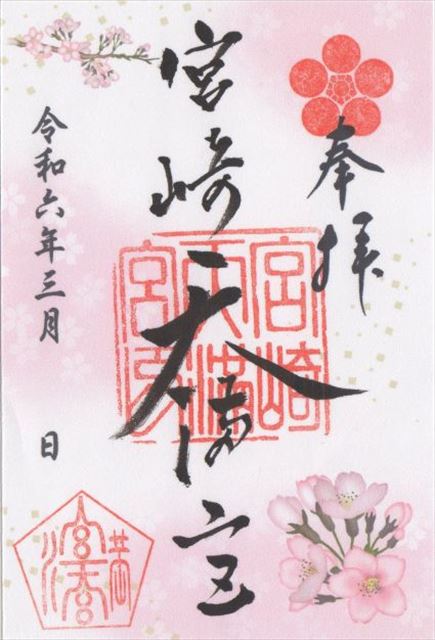 奉拝
宮崎天満宮
令和六年三月
日
宮崎天満宮印